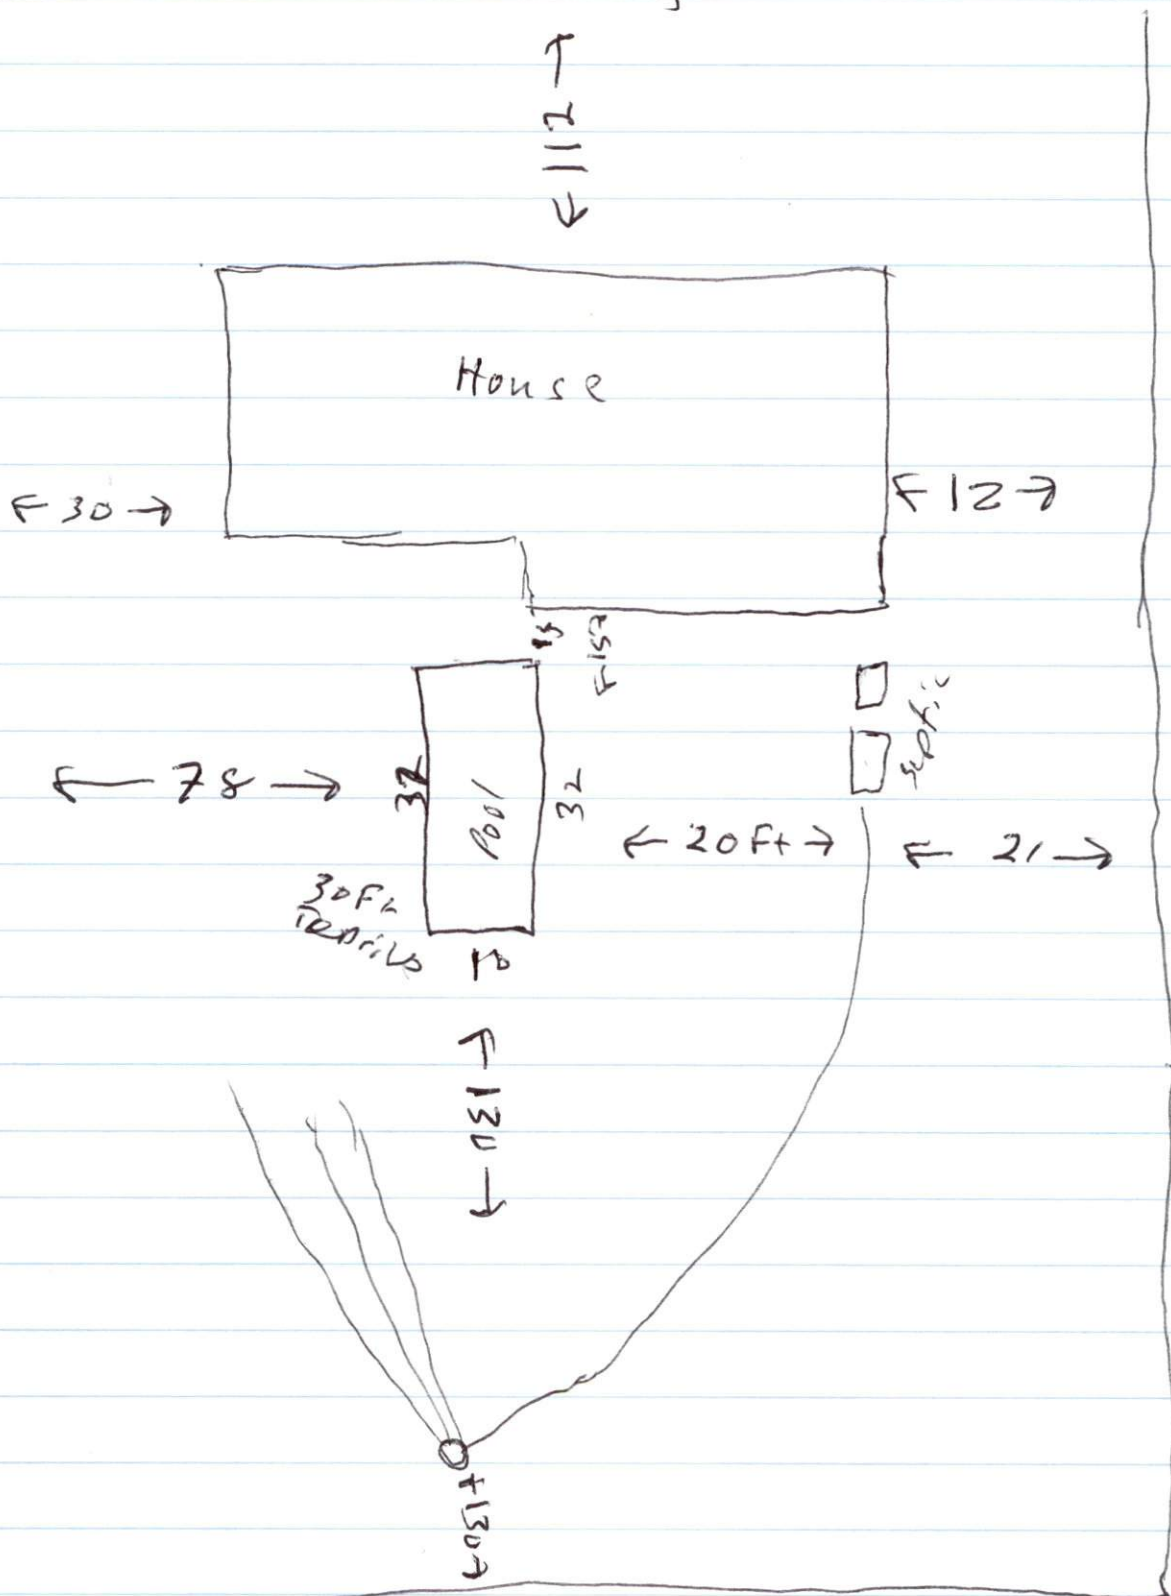 112
House
30
12
157
Septic
78
32
Pool
32
20Ft
21
30Ft
130
130